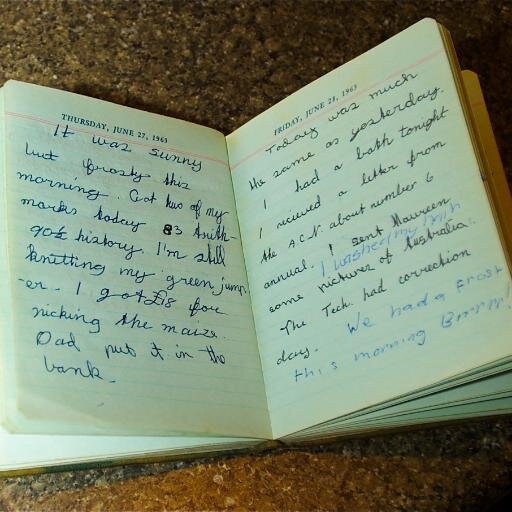 THURSDAY, JUNE 27, 1963
It was sunny
but frosty this
morning. Got two of my
marks today 83 Arith-
90½ history. I'm still
knitting my green jump-
er. I got £18 for
picking the maize.
Dad put it in the
bank.
FRIDAY, JUNE 28, 1963
Today was much
the same as yesterday.
I had a bath tonight
I recieved a letter from
the A.C.N. about number 6
annual. I sent Maureen
I washed my
some pictures of Australia.
The Tech. had correction
day. We had a Frost
this morning Brrrr!